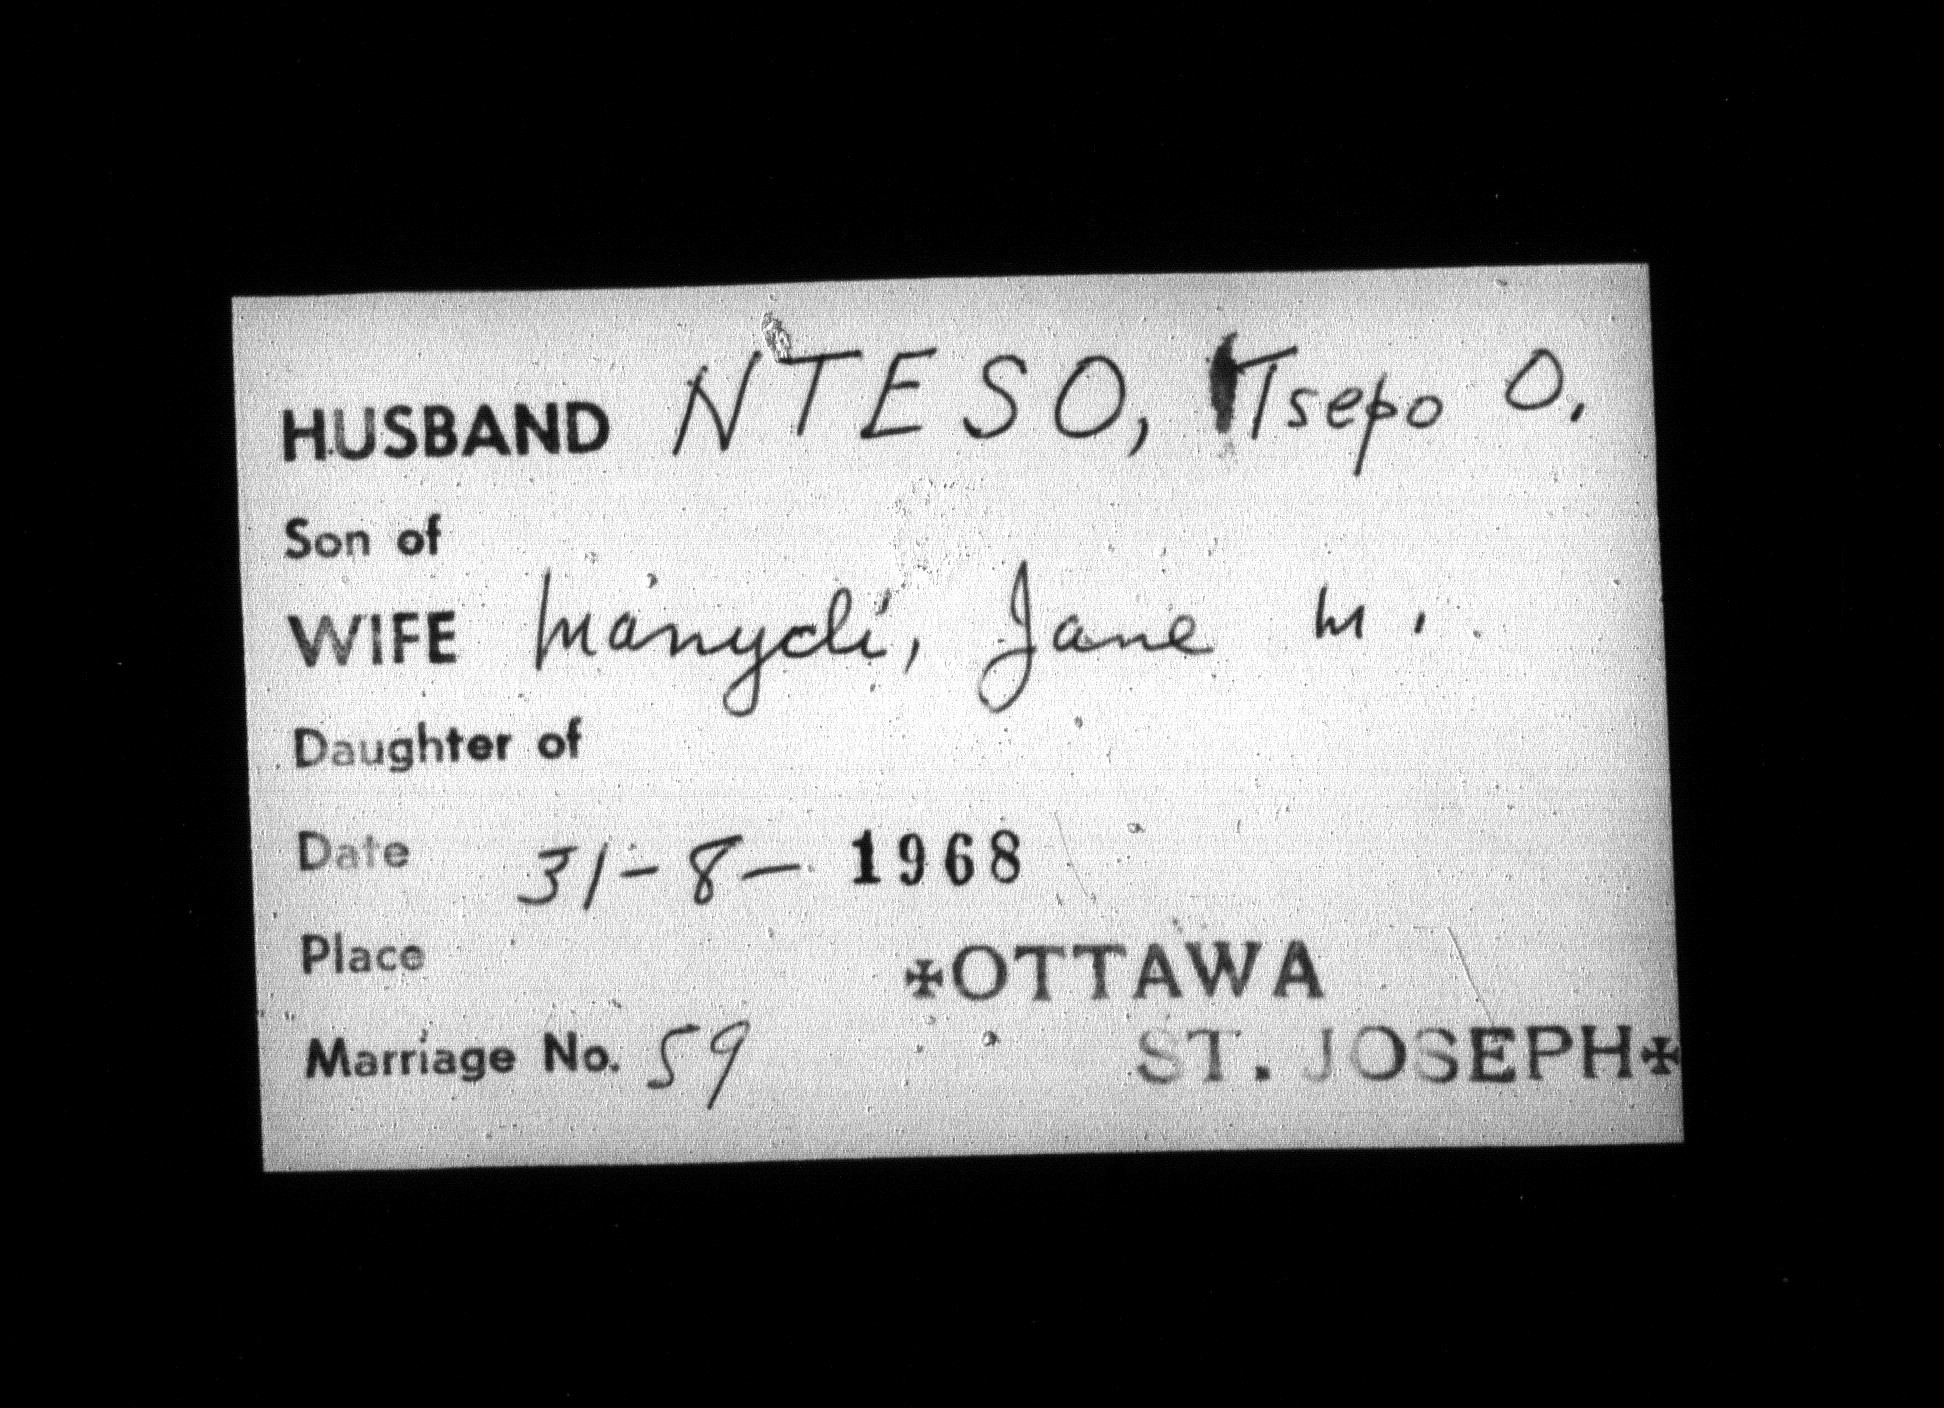 HUSBAND NTESO, Tsepo O.
Son of
WIFE Manydi, Jane M.
Daughter of
Date 31-8-1968
Place ✠OTTAWA
Marriage No. 59 ST. JOSEPH✠